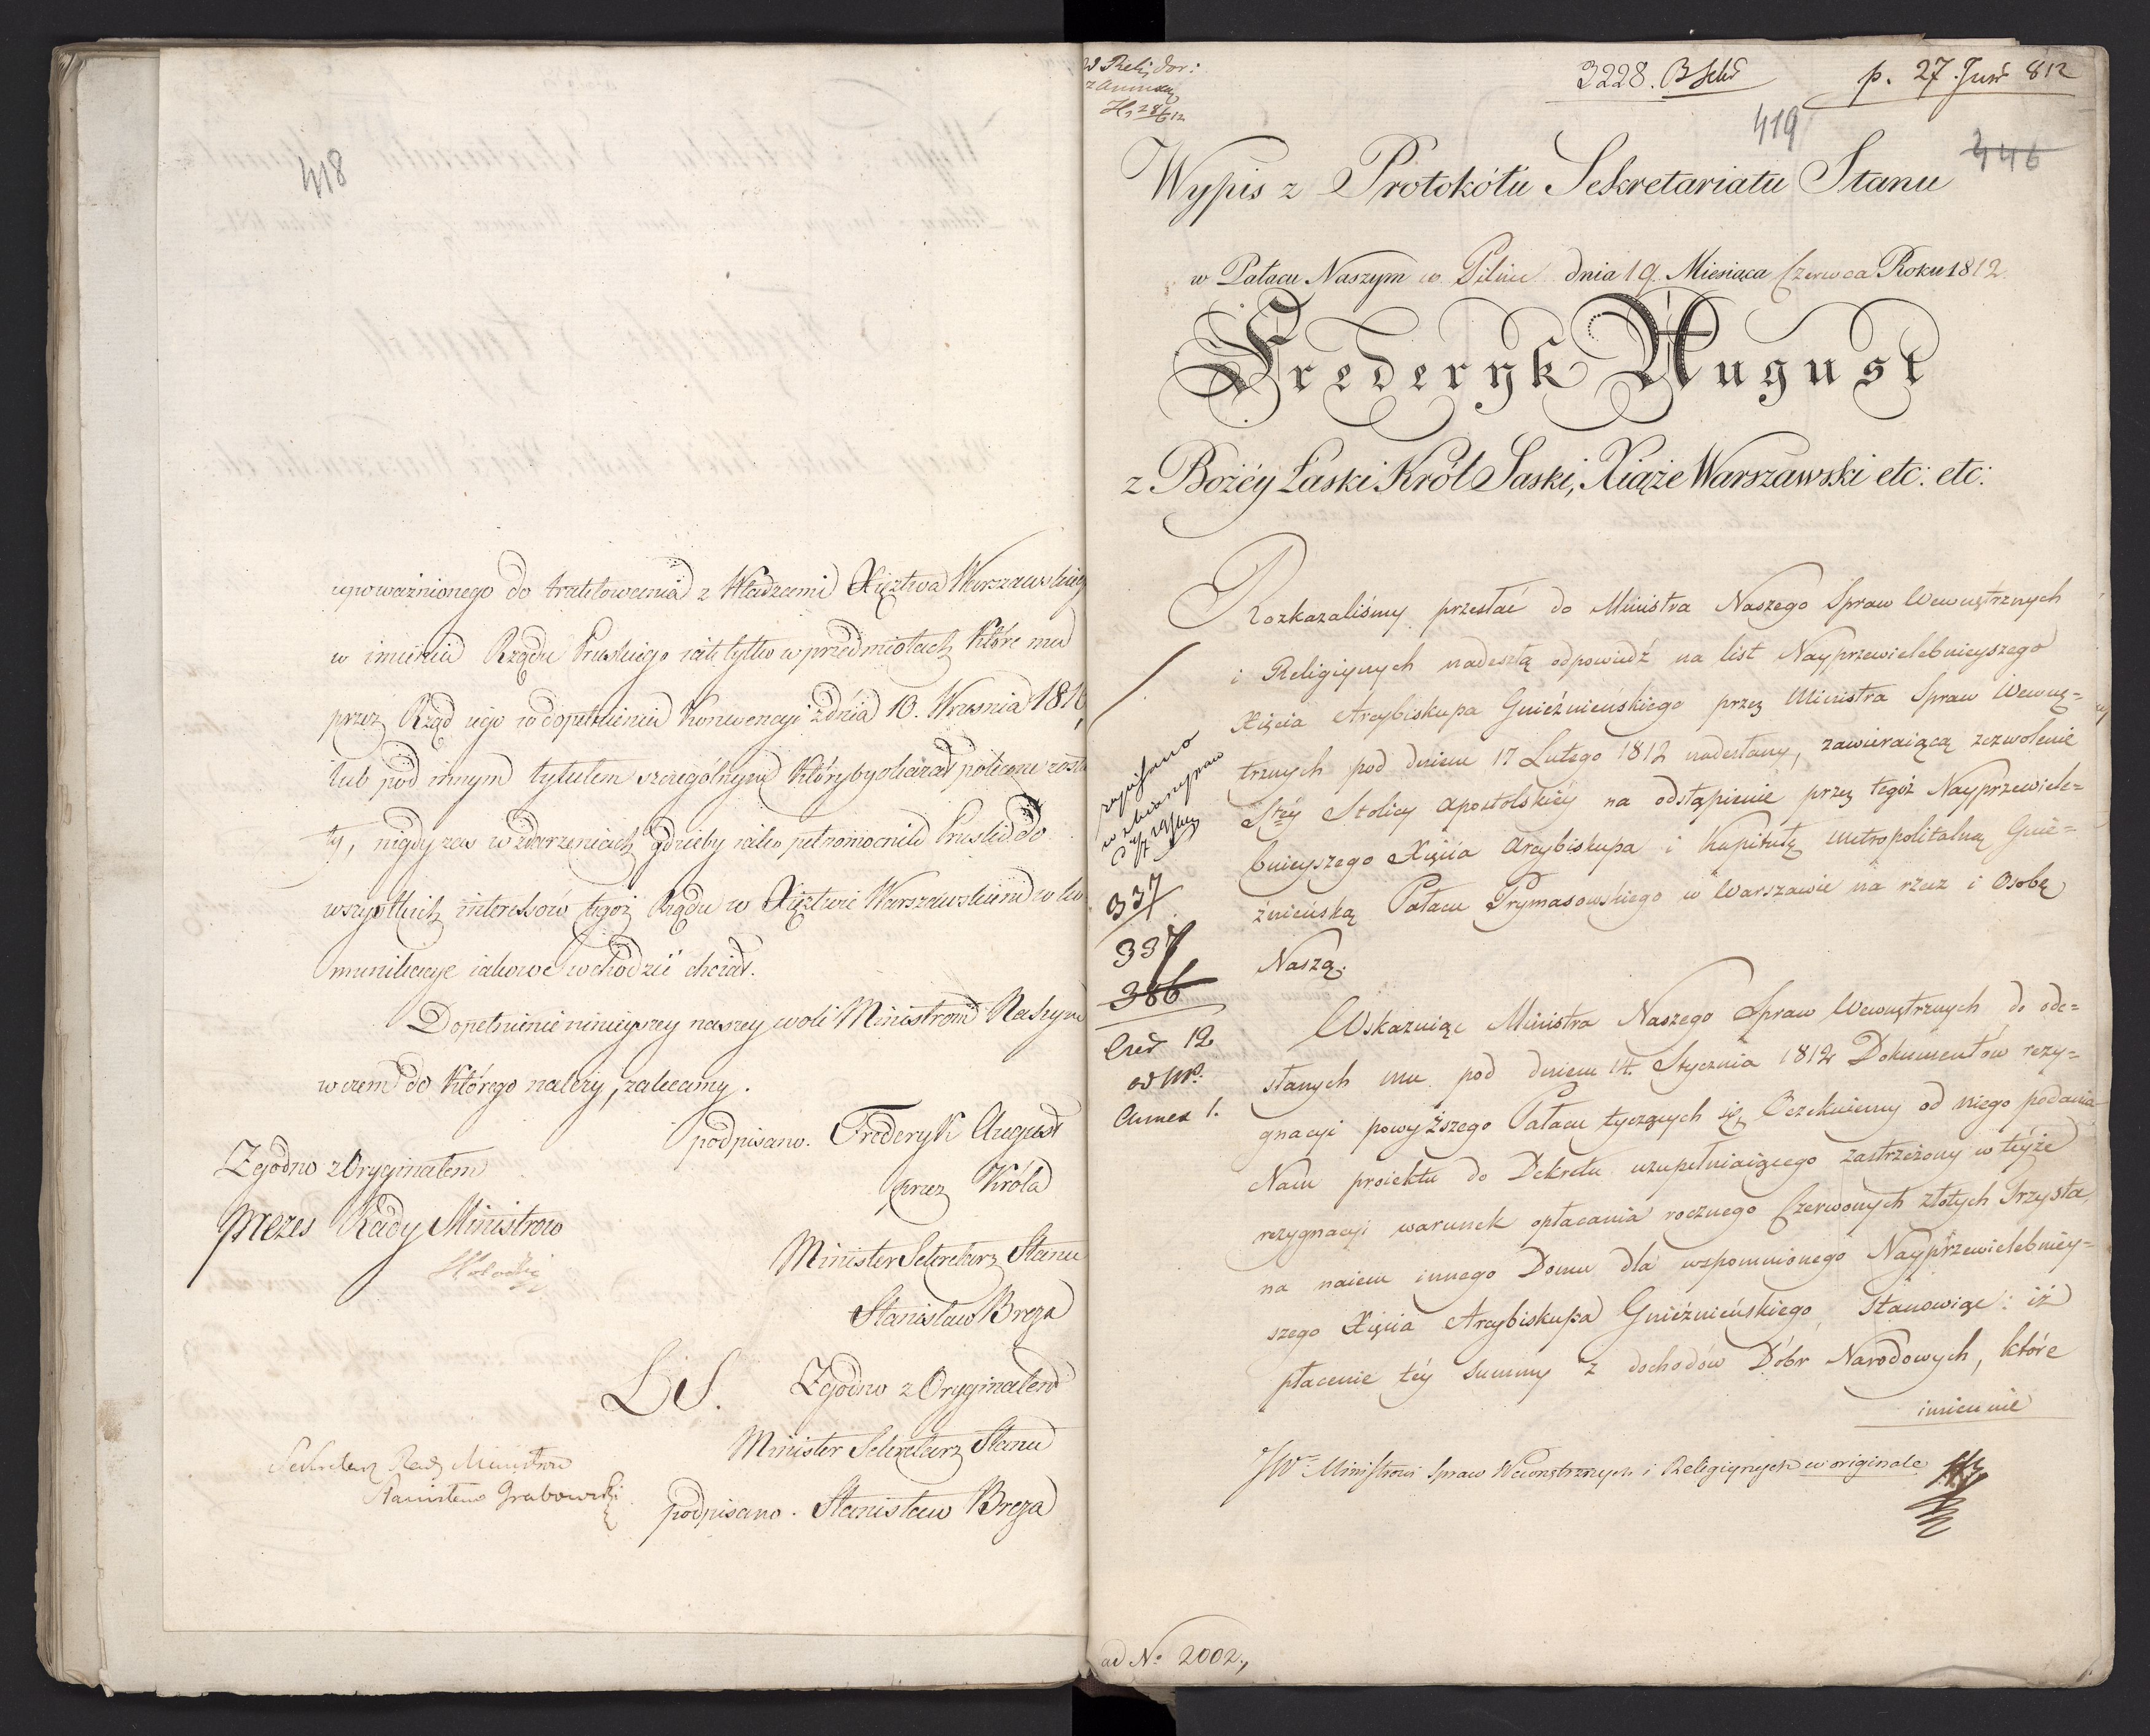 418
upoważnionego do traktowania z Władzami Xięztwa Warszawskiego
w imieniu Rządu Pruskiego iak tylko w przedmiotach które mu
przez Rząd iego w dopełnieniu Konwencyi z dnia 10. Wrzesnia 1810,
lub pod innym tytułem szczególnym któryby okazał polecone zosta
ły, nigdy zas w zdarzeniach gdzieby iako pełnomocnik Pruski do
wszystkich interessów tegoż Rządu w Xięztwie Warszawskiem w ko
munikacye iakowe wchodzić chciał.
Dopełnienie ninieyszey naszey woli Ministrom Naszym
w czem do którego należy, zalecamy.
podpisano. Frederyk August
przez Króla
Minister Sekretarz Stanu
Stanisław Breza
Zgodno z Oryginałem
Prezes Rady Ministrow
L. S. Zgodno z Oryginałem
Minister Sekretarz Stanu
podpisano. Stanisław Breza
Sekretarz Rady Ministrow
Stanisław Grabowski
3228. p. 27. Juni 812
419
446
Wypis z Protokółu Sekretariatu Stanu
w Pałacu Naszym w Pilnic dnia 19. Miesiąca Czerwca Roku 1812.
Frederyk August
z Bożéy Łaski Król Saski, Xiąże Warszawski etc: etc:
Rozkazaliśmy przesłać do Ministra Naszego Spraw Wewnętrznych
i Religiynych nadeszłą odpowiedź na list Nayprzewielebnieyszego
Xięcia Arcybiskupa Gnieźnieńskiego przez Ministra Spraw Wewnę=
trznych pod dniem 17 Lutego 1812 nadesłany, zawieraiącą zezwolenie
Stéy Stolicy Apostolskiéy na odstąpienie przez tegoż Nayprzewiele=
bnieyszego Xięcia Arcybiskupa i Kapitułę metropolitalną Gnie=
źnieńską Pałacu Prymasowskiego w Warszawie na rzecz i Osobę
Naszą.
Wskazuiąc Ministra Naszego Spraw Wewnętrznych do ode=
słanych mu pod dniem 14. Stycznia 1812 Dokumentów rezy=
gnacyi powyższego Pałacu tyczących się, Oczekuiemy od niego podania
Nam proiektu do Dekretu uzupełniaiącego zastrzeżony w téyże
rezygnacyi warunek opłacania rocznego Czerwonych złotych Trzysta,
na naiem innego Domu dla wspomnionego Nayprzewielebniey=
szego Xięcia Arcybiskupa Gnieźnieńskiego, stanowiąc: iż
płacenie téy Summy z dochodów Dóbr Narodowych, które
imiennie
337
337
386
12
Annex 1.
JW. Ministrowi Spraw Wewnętrznych i Religiynych w originale
ad No 2002.,